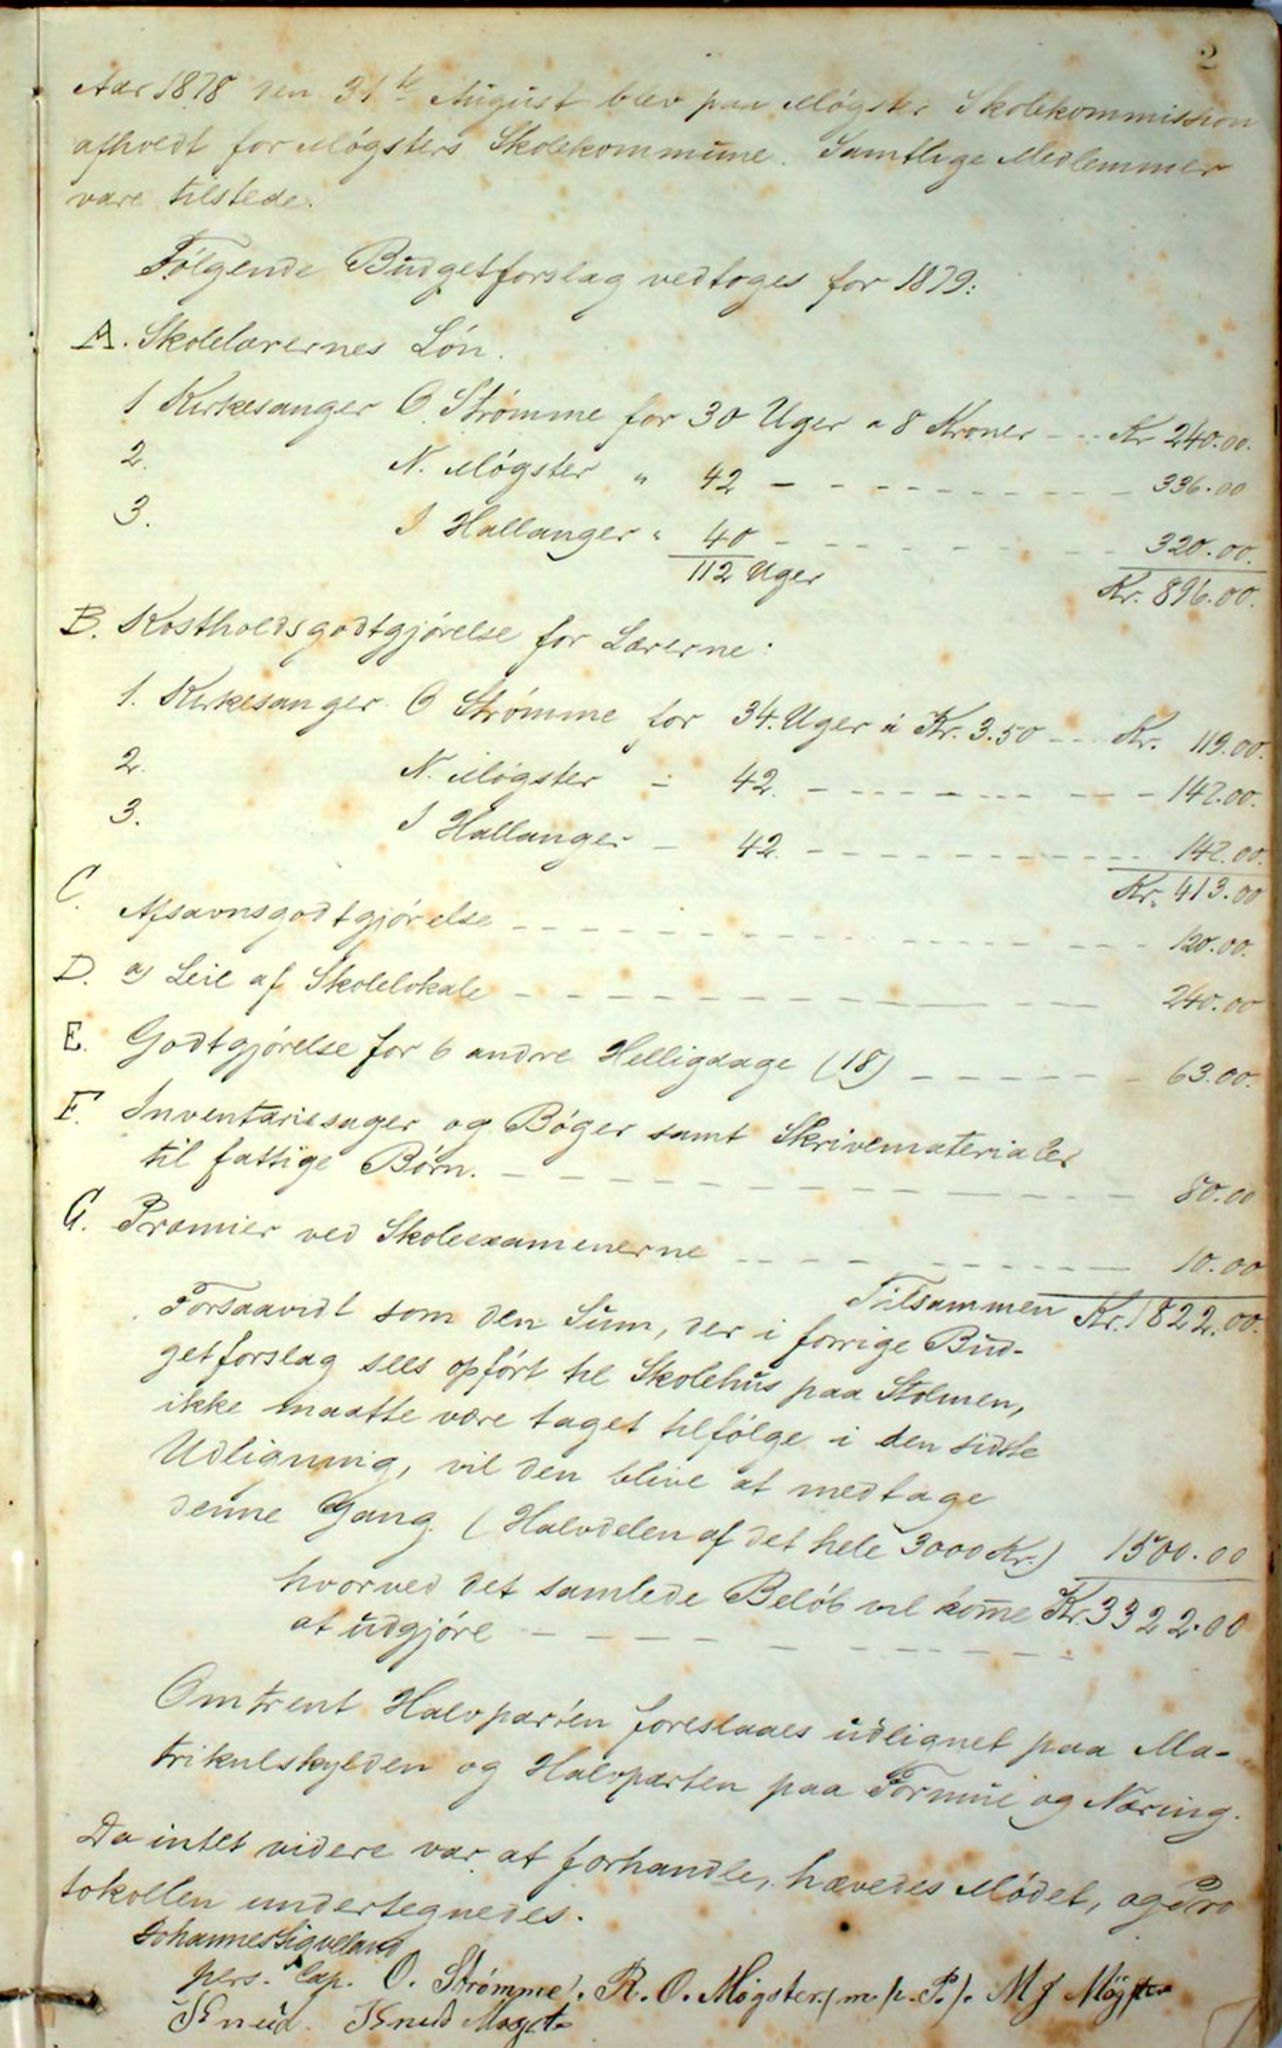 2
Aar 1878 den 31te August blev paa Møgster Skolekommission
afholdt for Møgsters Skolekommune. Samtlige Medlemmer
vare tilstede.
Følgende Budgetforslag vedtoges for 1879:
A. Skolelærernes Løn.
1 Kirkesanger O. Strømme for 30 Uger a 8 Kroner - - - Kr 240.00.
2. N. Møgster " 42 - - - - - - - - - - 336.00
3. I Hallanger " 40 - - - - - - - - - 320.00.
112 Uger Kr. 896.00.
B. Kostholdsgodtgjørelse for Lærerne:
1. Kirkesanger O Strømme for 34. Uger á Kr. 3.50 - - - Kr. 119.00.
2. N. Møgster - 42. - - - - - - - - - - 147.00.
3. I Hallanger - 42. - - - - - - - - - - 147.00.
Kr. 413.00
C. Afsavnsgodtgjørelse - - - - - - - - - - 120.00.
D. a) Leie af Skolelokale - - - - - - - - - - 240.00
E. Godtgjørelse for 6 andre Helligdage (18) - - - - - - 63.00.
F. Inventariesager og Bøger samt Skrivematerialer
til fattige Børn. - - - - - - - - - - 80.00
G. Præmier ved Skoleexamenerne - - - - - - - - 10.00
Tilsammen Kr. 1822.00.
Forsaavidt som den Sum, der i forrige Bud-
getforslag sees opført til Skolehus paa Stolmen,
ikke maatte være taget tilfølge i den sidste
Udligning, vil den blive at medtage
denne Gang. (Halvdelen af det hele 3000 Kr.) 1500.00
hvorved det samlede Beløb vil kome Kr. 3322.00
at udgjøre - - - - - - - - - -
Omtrent Halvparten foreslaaes udlignet paa Ma-
trikulskylden og Halvparten paa Formue og Næring.
Da intet videre var at forhandle, hævedes Mødet, og Pro
tokollen undertegnedes.
Johannes Sigveland
pers. Cap. O. Strømme. R. O. Møgster (m. p. P.). M J Møgster
Knud Knud Møgst